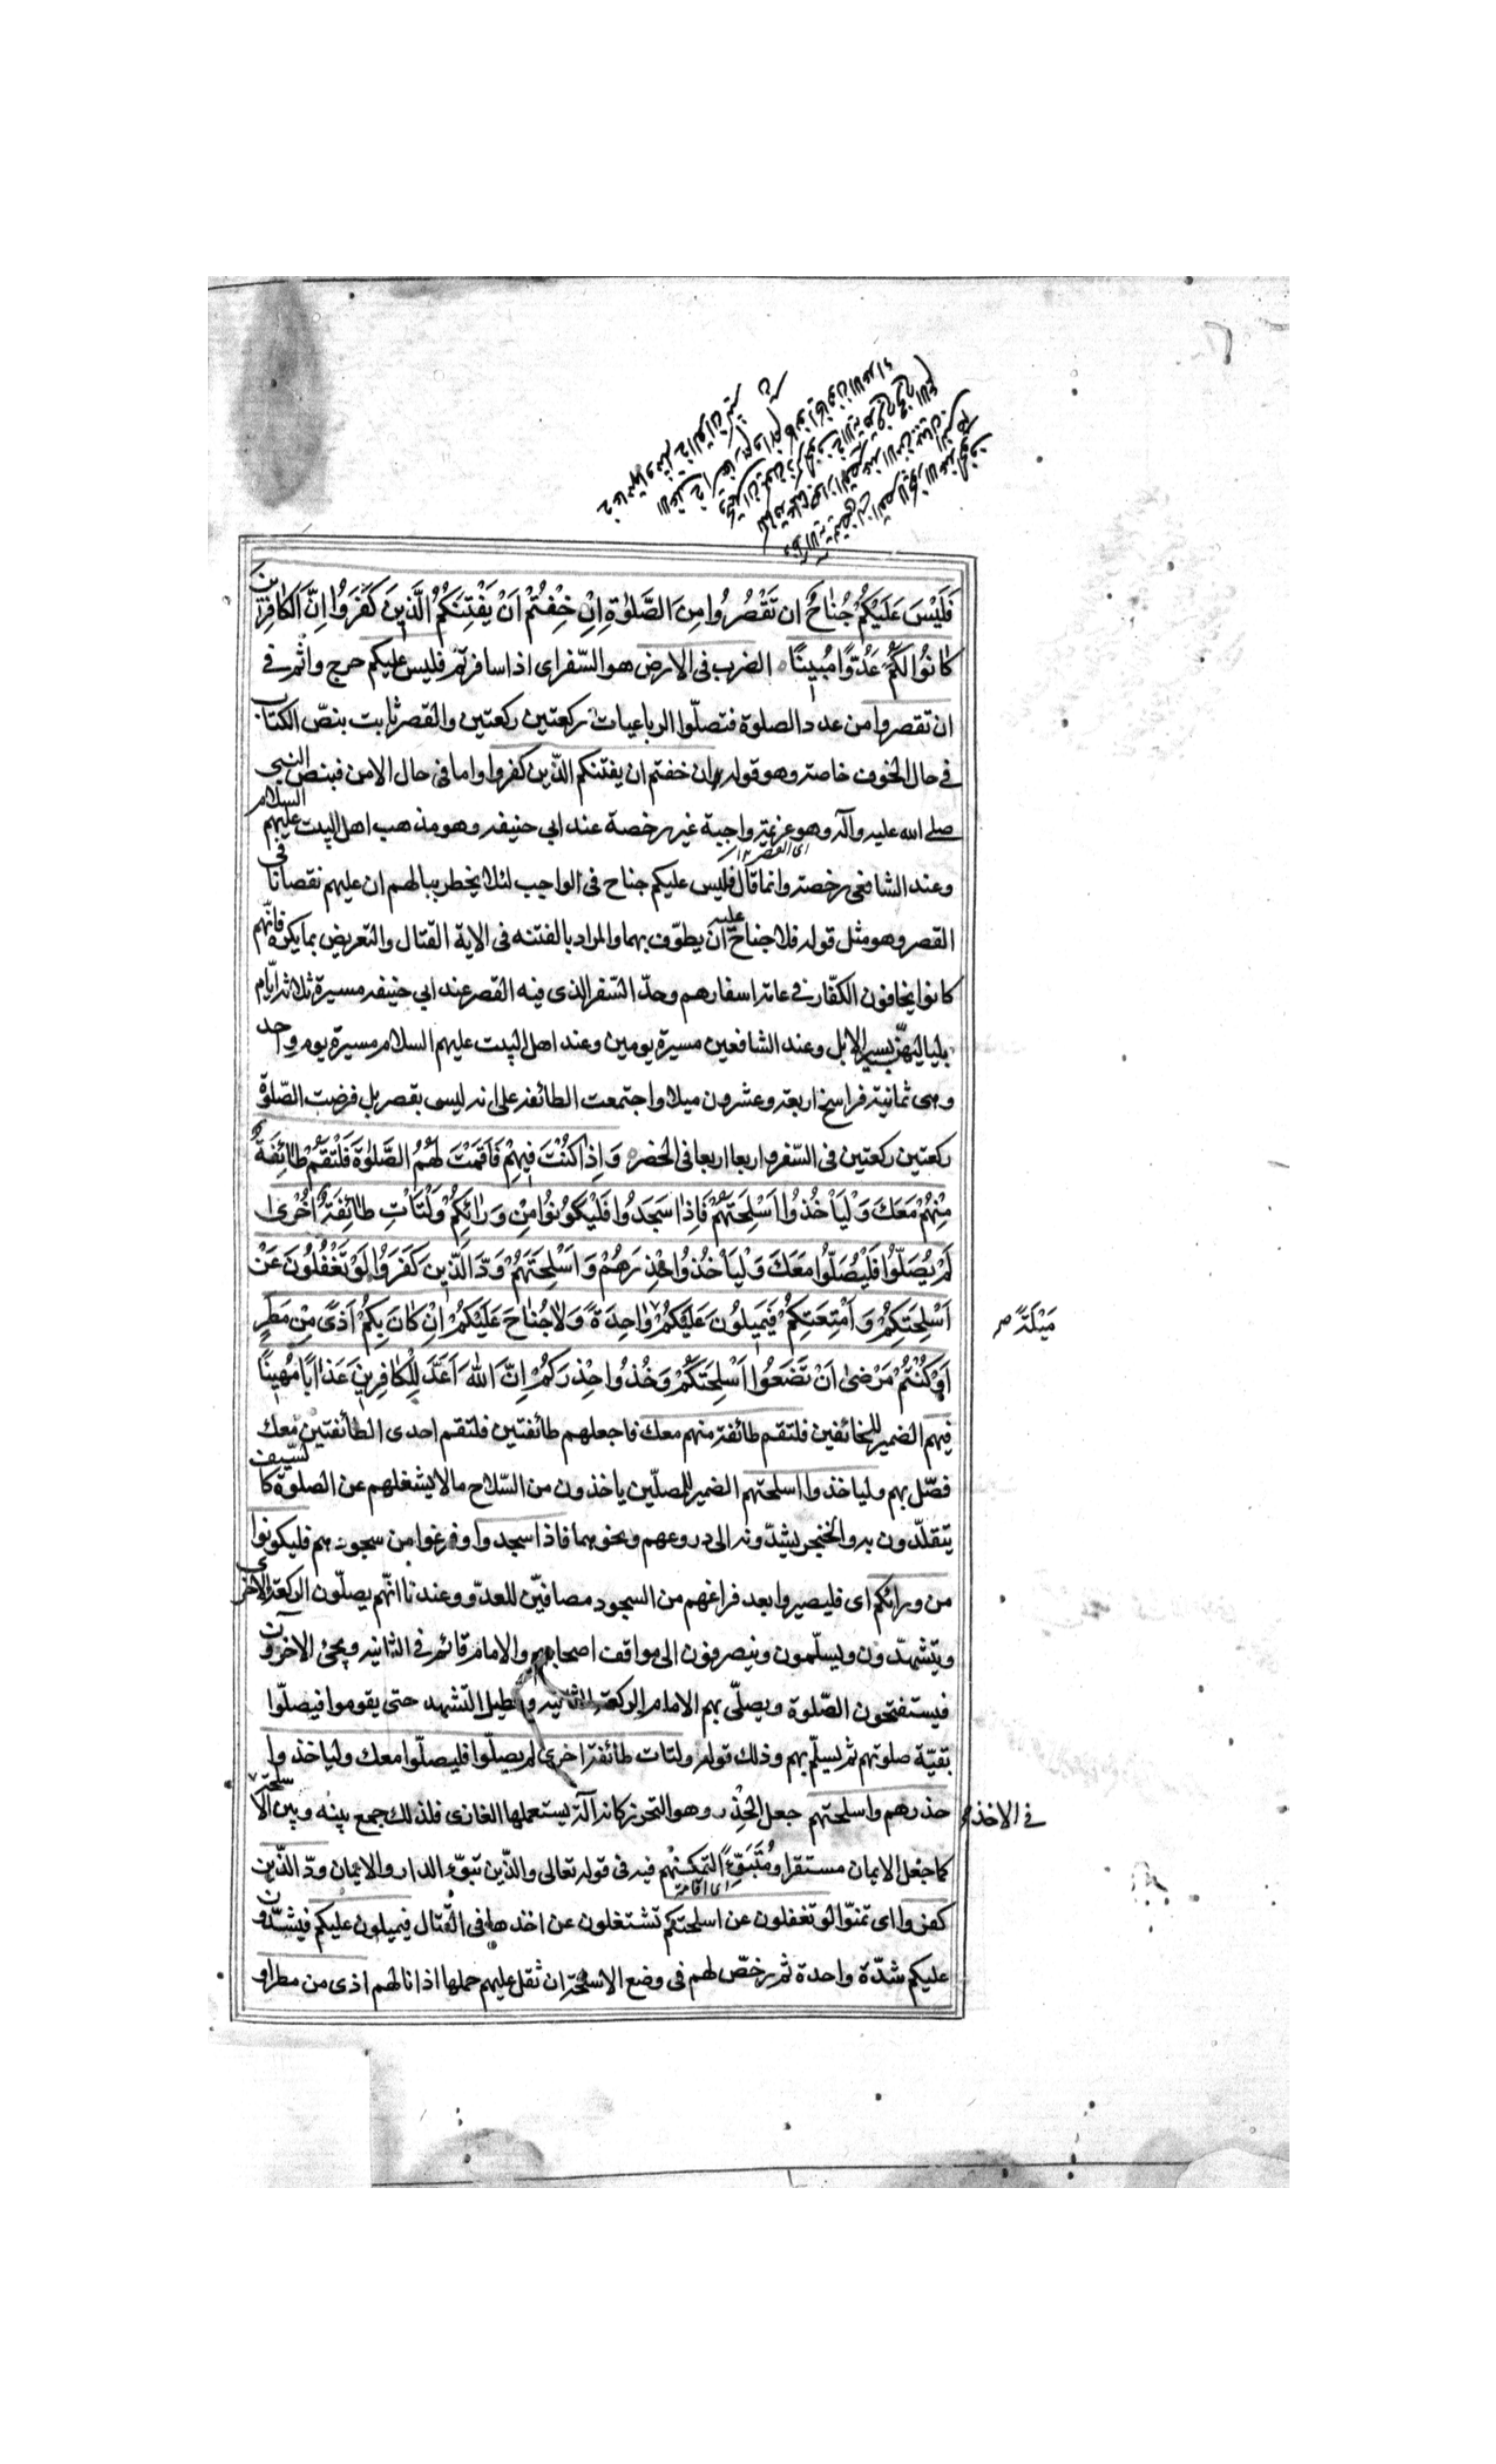 فَلَيْسَ عَلَيْكُمْ جُنَاحٌ ان تَقْصُرُوا مِنَ الصَّلوٰةِ اِنْ خِفْتُمْ اَنْ يَفْتِنَكُمُ الَّذِينَ كَفَرُوا اِنَّ الْكَافِرِينَ
كَانُوا لَكُمْ عَدُوًّا مُبِينًا الضرب فى الارض هو السّفر اى اذا سافرتم فليس عليكم حرج واثم فى
ان تقصروا من عدد الصلوة فتصلّوا الرباعيات ركعتين ركعتين والقصر ثابت بنصّ الكتاب
فى حال الخوف خاصة وهو قوله ان خفتم ان يفتنكم الذين كفروا واما فى حال الامن فبنص النبى
صلى الله عليه وآله وهو عزيمة واجبة غير رخصة عند ابي حنيفه وهو مذهب اهل البيت عليهم السلام
وعند الشافعى رخصة وانما قال فليس عليكم جناح فى الواجب لئلا يخطر ببالهم ان عليهم نقصانا فى
القصر وهو مثل قوله فلا جناح عليه ان يطوّف بهما والمراد بالفتنه فى الاية القتال والتعريض بما يكره فانّهم
كانوا يخافون الكفّار فى عامة اسفارهم وحدّ السّفر الذى فيه القصر عند ابي حنيفه مسيرة ثلاثة ايّام
بلياليهنّ بسير الابل وعند الشافعين مسيرة يومين وعند اهل البيت عليهم السلام مسيرة يوم واحد
وهى ثمانية فراسخ اربعة وعشرون ميلا واجتمعت الطائفة على انه ليس بقصر بل فرضت الصّلوة
ركعتين ركعتين فى السّفر واربعا اربعا فى الحضر وَاِذَا كُنْتَ فِيهِمْ فَاَقَمْتَ لَهُمُ الصَّلوٰةَ فَلْتَقُمْ طَائِفَةٌ
مِنْهُمْ مَعَكَ وَلْيَأْخُذُوا اَسْلِحَتَهُمْ فَاِذَا سَجَدُوا فَلْيَكُونُوا مِنْ وَرَائِكُمْ وَلْتَاْتِ طَائِفَةٌ اُخْرٰى
لَمْ يُصَلُّوا فَلْيُصَلُّوا مَعَكَ وَلْيَأْخُذُوا حِذْرَهُمْ وَاَسْلِحَتَهُمْ وَدَّ الَّذِينَ كَفَرُوا لَوْ تَغْفُلُونَ عَنْ
اَسْلِحَتِكُمْ وَاَمْتِعَتِكُمْ فَيَمِيلُونَ عَلَيْكُمْ وَاحِدَةً وَلَا جُنَاحَ عَلَيْكُمْ اِنْ كَانَ بِكُمْ اَذًى مِنْ مَطَرٍ
مَيْلَةً
اَوْ كُنْتُمْ مَرْضٰى اَنْ تَضَعُوا اَسْلِحَتَكُمْ وَخُذُوا حِذْرَكُمْ اِنَّ اللّٰهَ اَعَدَّ لِلْكَافِرِينَ عَذَابًا مُهِينًا
فيهم الضمير للخائفين فلتقم طائفة منهم معك فاجعلهم طائفتين فلتقم احدى الطائفتين معك
فصّل بهم ولياخذوا اسلحتهم الضمير للمصلّين ياخذون من السّلاح ما لا يشغلهم عن الصلوة كالسّيف
يتقلّدون به والخنجر يشدّونه الى دروعهم ونحو هما فاذا سجدوا وفرغوا من سجودهم فليكونوا
من ورائكم اى فليصيروا بعد فراغهم من السجود مصافّين للعدّو وعندنا انّهم يصلّون الركعة الاخرى
ويتشهّدون ويسلّمون وينصرفون الى مواقف اصحابهم والامام قائم فى الثانيه ويجئ الاخرون
فيستفتحون الصّلوة ويصلّى بهم الامام الركعة الثانيه ويطيل التشهد حتى يقوموا فيصلّوا
بقيّة صلوتهم ثم يسلّم بهم وذلك قوله ولتات طائفة اخرى لم يصلّوا فليصلّوا معك ولياخذوا
حذرهم واسلحتهم جعل الحِذْر وهو التحرز كانه آلة يستعملها الغازى فلذلك جمع بينه وبين الاسلحة
فى الاخذ
كما جعل الايمان مستقرا ومُتَبَوَّءً التمكنهم فيه فى قوله تعالى والذّين تبوّء الدار والايمان ودّ الذّين
كفروا اى تمنّوا لو تغفلون عن اسلحتكم تشتغلون عن اخذها فى القتال فيميلون عليكم فيشدّون
عليكم شدّة واحدة ثم رخصّ لهم فى وضع الاسلحة ان ثقل عليهم حملها اذا نالهم اذى من مطر او